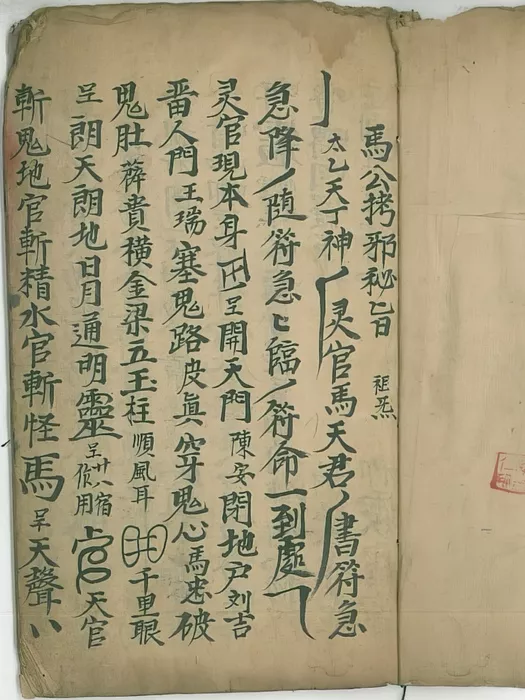 馬公拷邪秘旨 祖炁
太乙天丁神 灵官馬天君 書符急
急降 随符急〻臨 符命一到處
灵官現本身 呈開天門 陳安閉地户刘吉
畨人門王瑞塞鬼路皮真穿鬼心馬忠破
鬼肚薛貴橫金梁五玉柱順風耳 千里眼
呈朗天朗地日月通明靈呈廿八宿 用 天官
斬鬼地官斬精水官斬怪馬呈天聲八